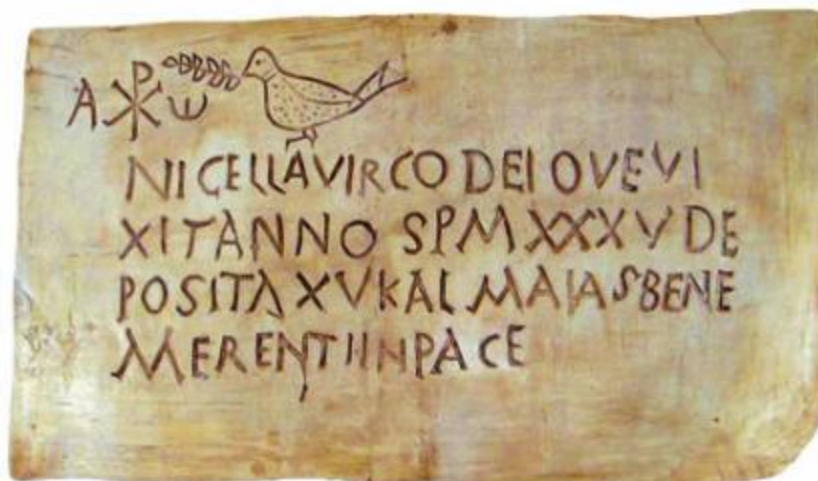 A ☧ ω
NICELLAVIRCO DEI OVEVI
XITANNO SPM XXXV DE
POSITA XVKAL MAIASBENE
MERENTIINPACE